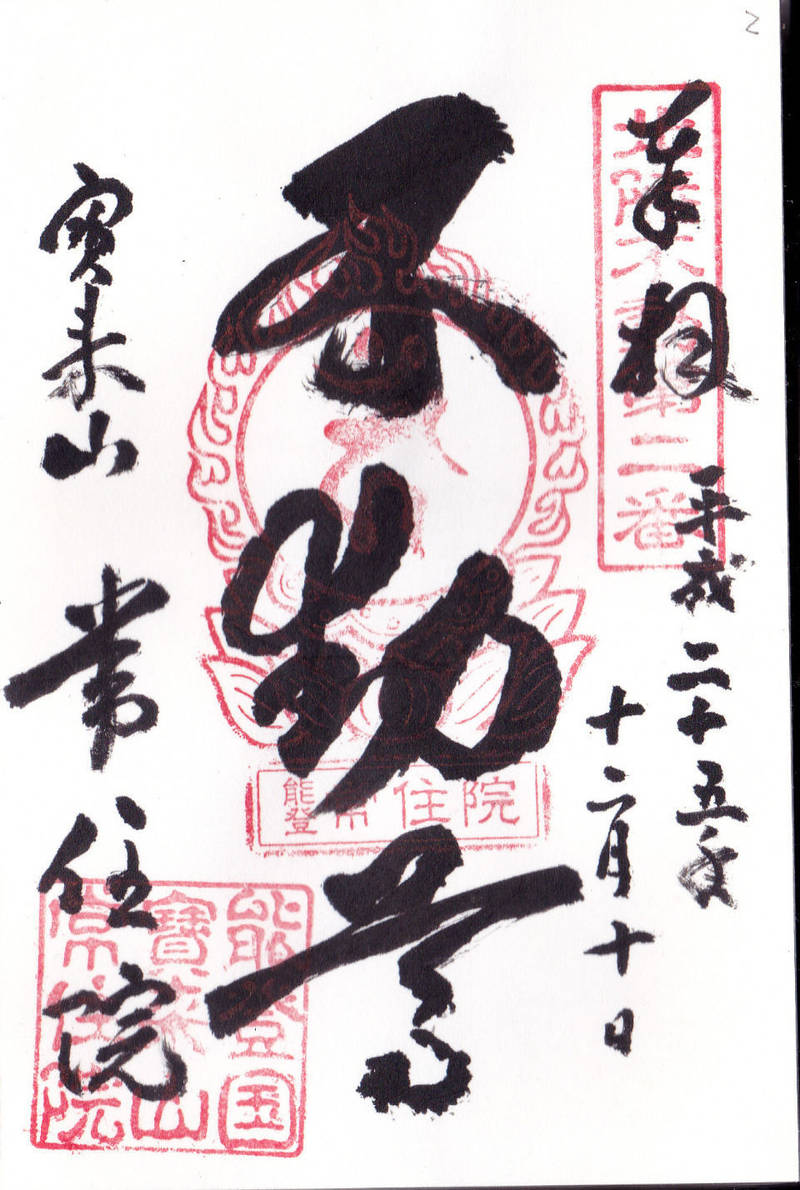 2
奉拝
北陸不動第二番
平成二十五年
十二月十日
不動尊
能登
常住院
寳来山 常住院
能登国
寳来山
常住院